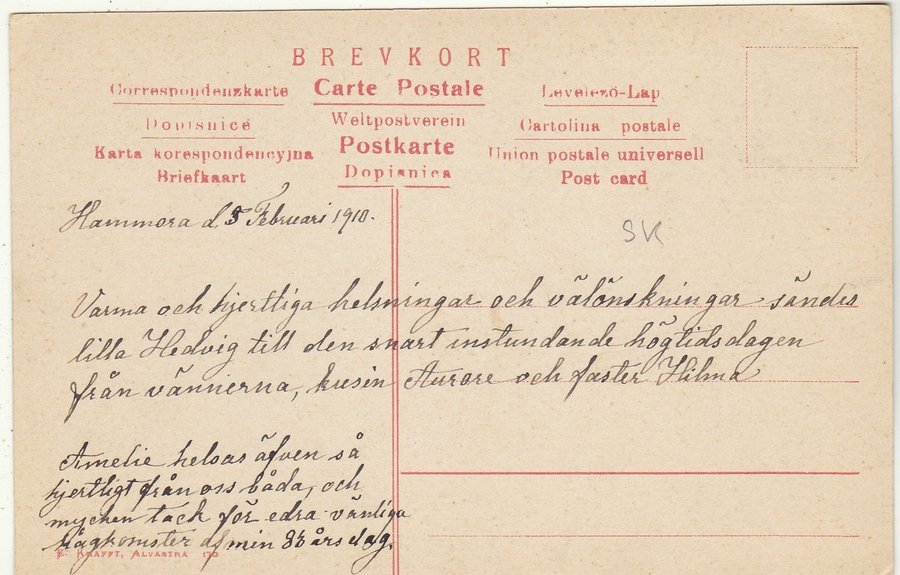 BREVKORT
Correspondenzkarte Carte Postale Levelező-Lap
Dopisnice Weltpostverein Cartolina postale
Karta korespondencyjna Postkarte Union postale universell
Briefkaart Dopisnica Post card
Hammora d. 5 Februari 1910.
SK
Varma och hjertliga helsningar och välönskningar sändes
lilla Hedvig till den snart instundande högtidsdagen
från vännerna, kusin Aurore och faster Hilma
Amelie helsas äfven så
hjertligt från oss båda, och
mycken tack för edra vänliga
hågkomster af min 83 års dag.
E. KRAFFT, ALVASTRA 170